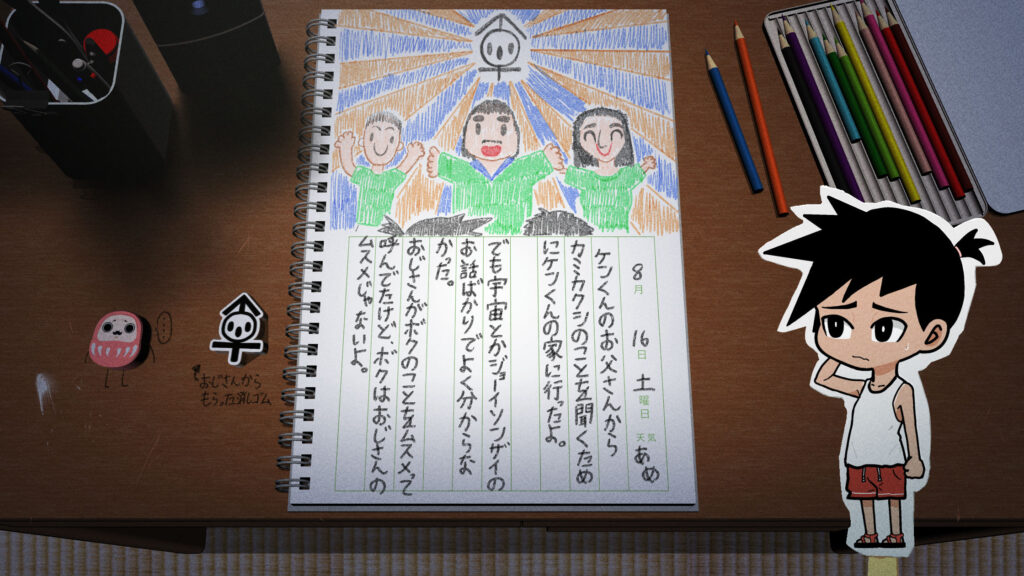 8月 16日 土曜日 天気 あめ
ケンくんのお父さんから
カミカクシのことを聞くため
にケンくんの家に行ったよ。
でも宇宙とかジョーイソンザイの
お話ばかりでよく分からな
かった。
おじさんがボクのことをムスメって
呼んでたけど、ボクはおじさんの
ムスメじゃないよ。
おじさんから
もらった消しゴム